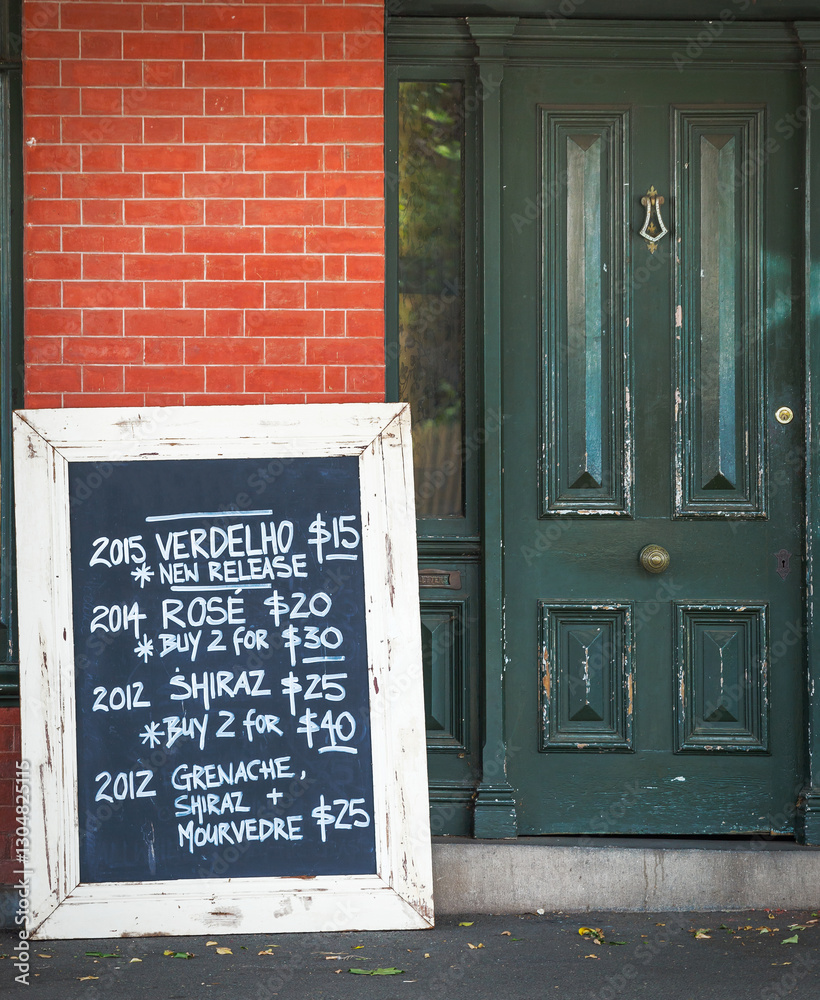 2015 VERDELHO $15
* NEW RELEASE
2014 ROSÉ $20
* BUY 2 FOR $30
2012 SHIRAZ $25
* BUY 2 FOR $40
2012 GRENACHE,
SHIRAZ +
MOURVEDRE $25
Adobe Stock | #1304825115